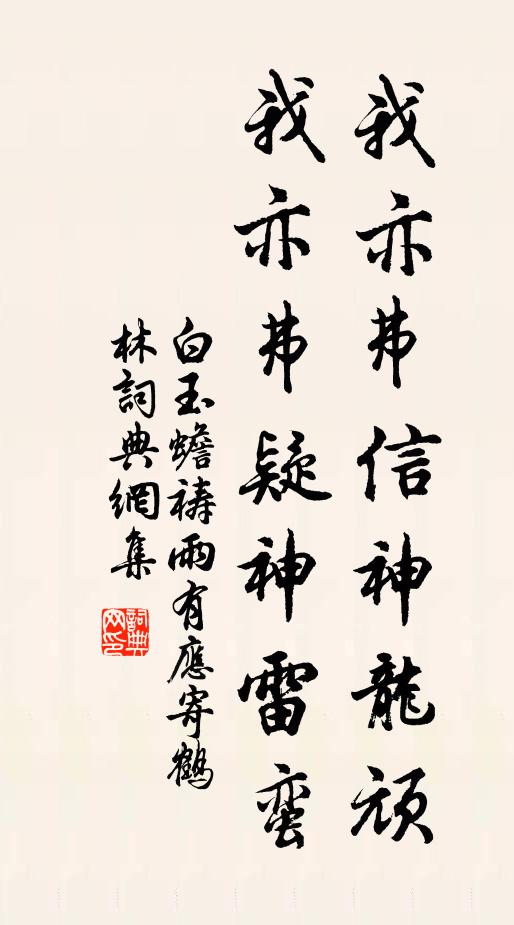 我亦弗信神龍頑
我亦弗疑神雷蛮
白玉蟾祷雨有應寄鶴
林詞典網集
詞典
网印